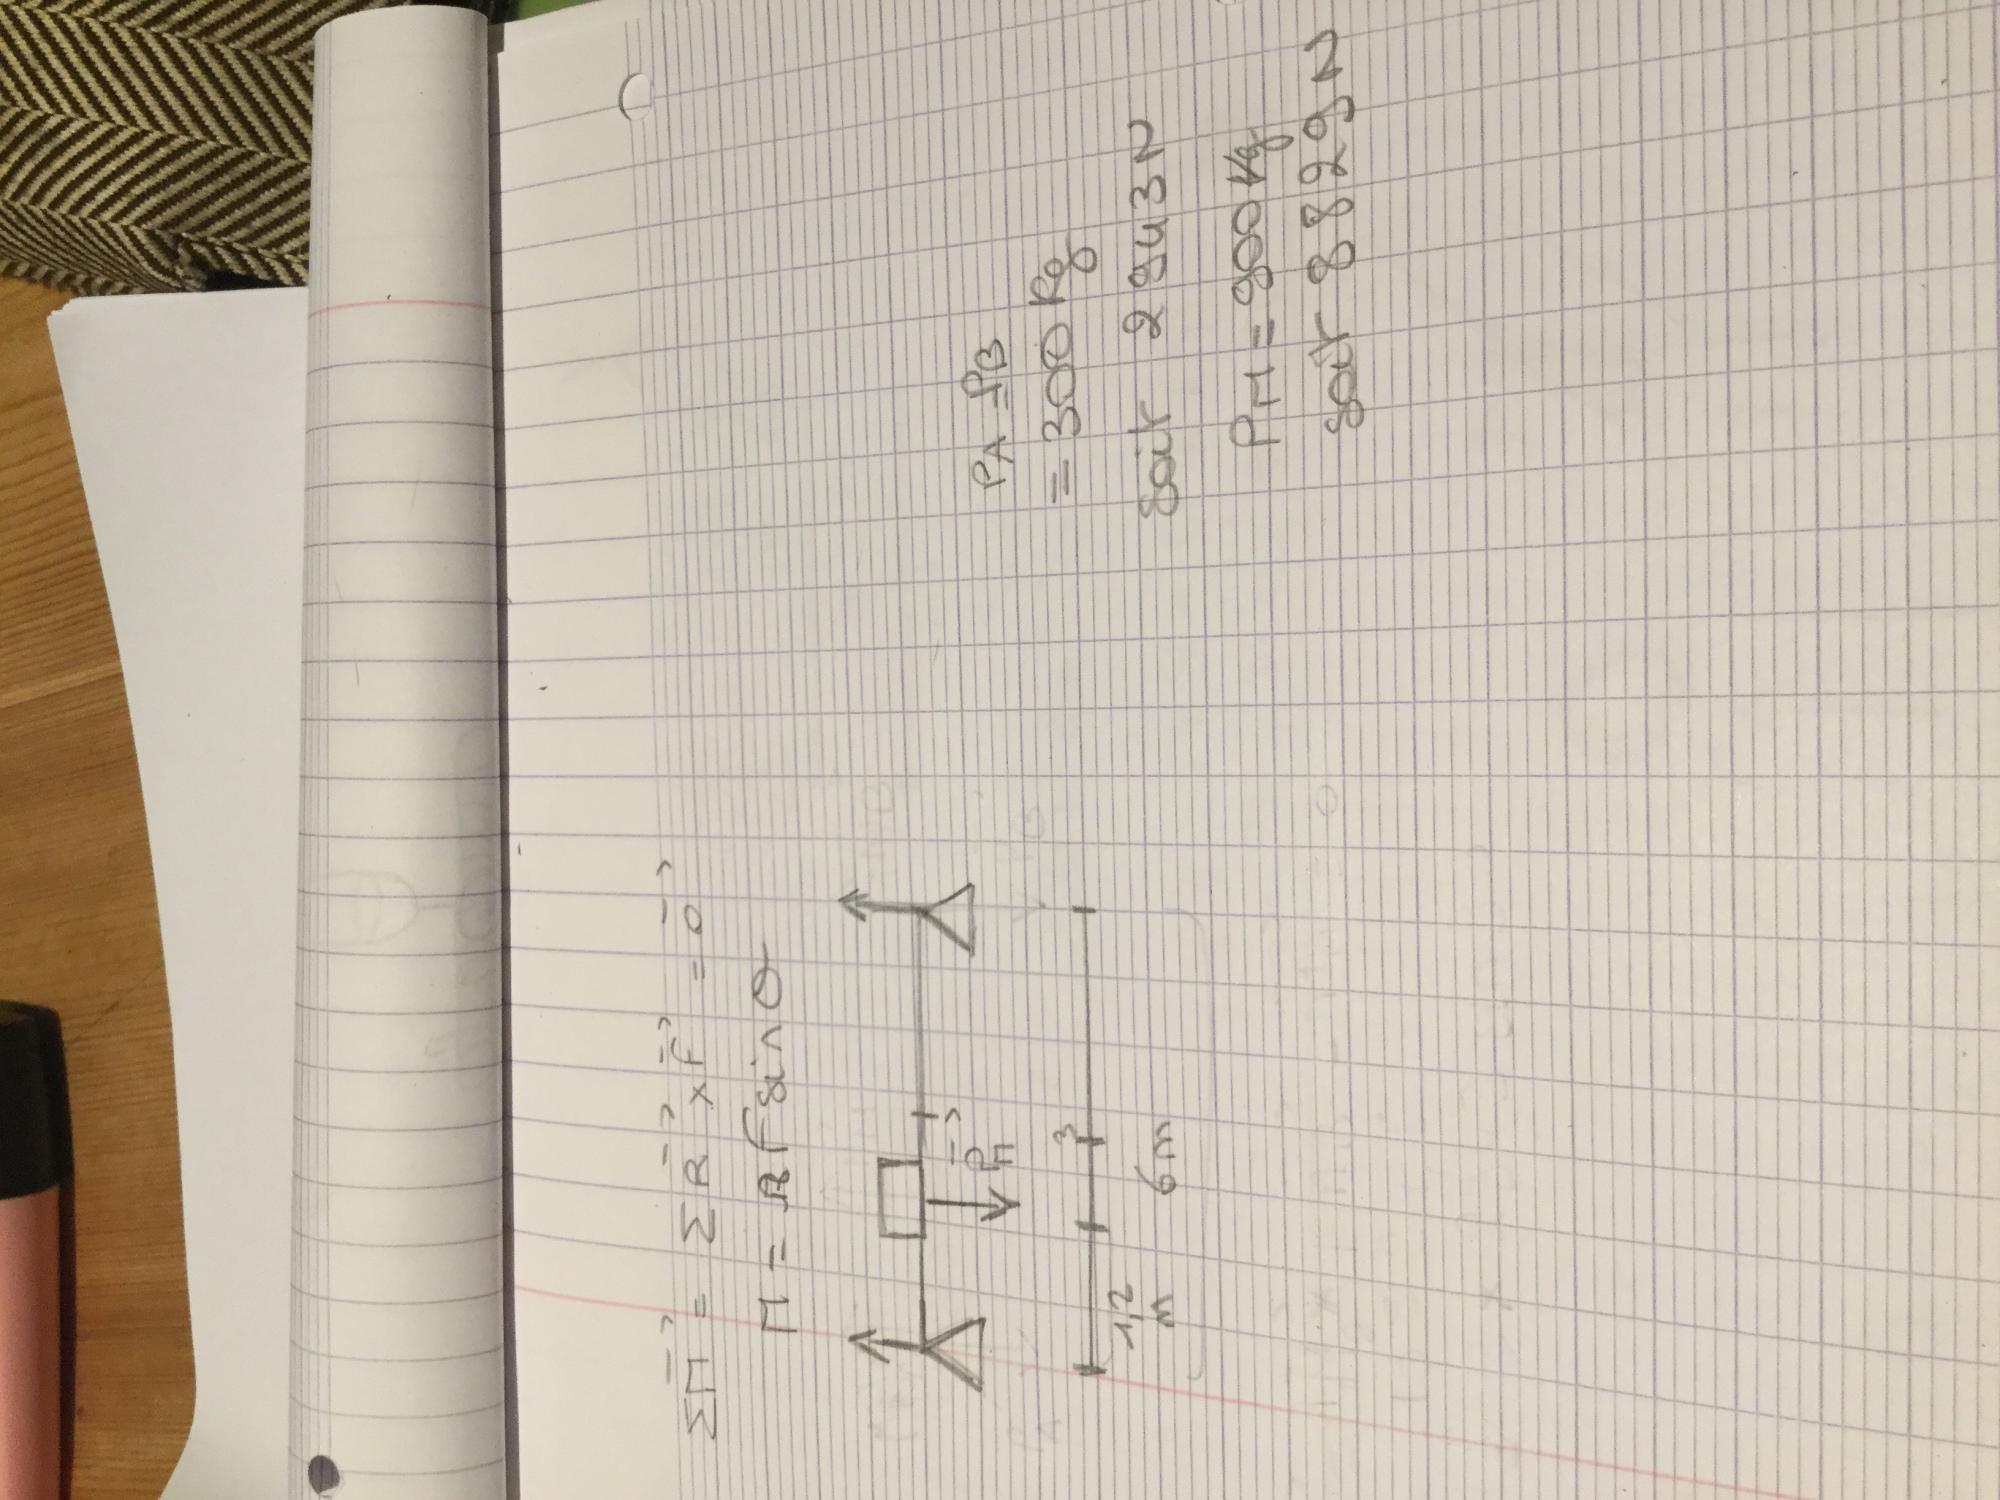 ΣM⃗ = ΣR⃗ × F⃗ = 0⃗
M = RF sin θ
P⃗M
3
1,2 m
6 m
PA = PB
= 300 Kg
soit 2943 N
PM = 900 Kg
soit 8829 N